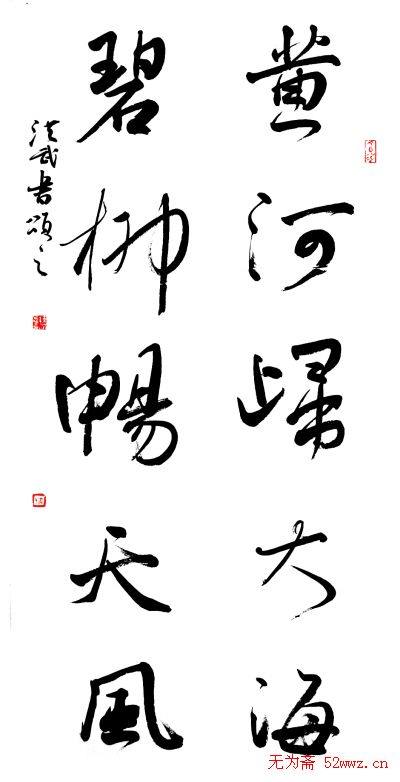 黄河歸大海
碧柳暢天風
洪武書頌之
无为斋 52wwz.cn